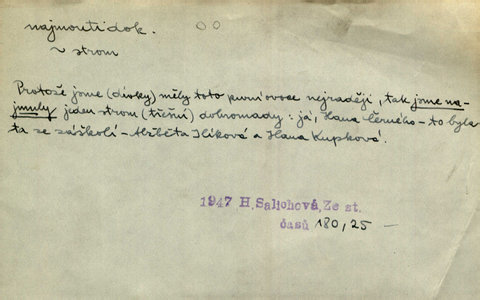 najmouti dok.
~ strom
Protože jsme (dívky) měly toto první ovoce nejraději, tak jsme na-
jmuly jeden strom (třešní) dohromady: já, Hana Černého - to byla
ta ze záškolí - Alžběta Ilíková a Hana Kupková.
1947 H. Salichová, Ze st.
časů 180, 25 -